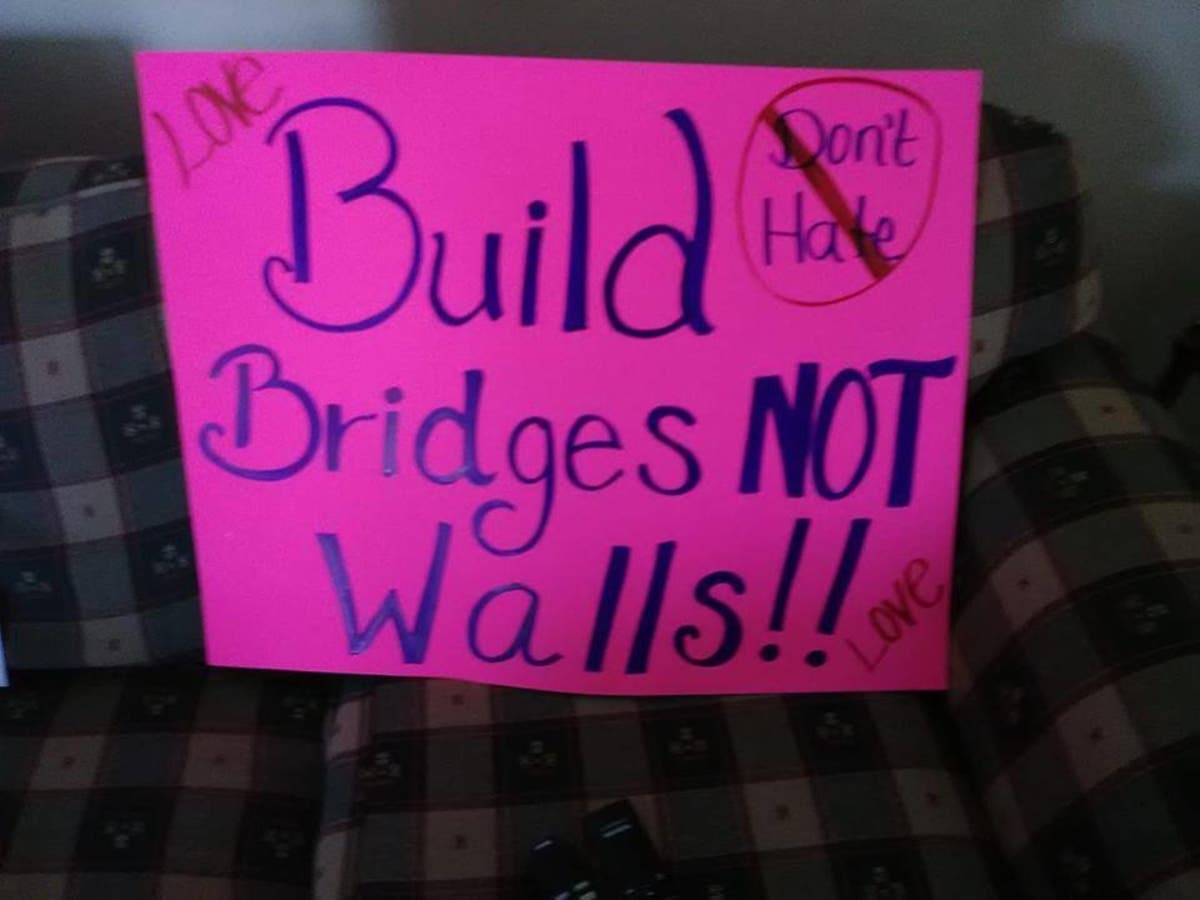 Love
Don't
Hate
Build
Bridges NOT
Walls!!
Love